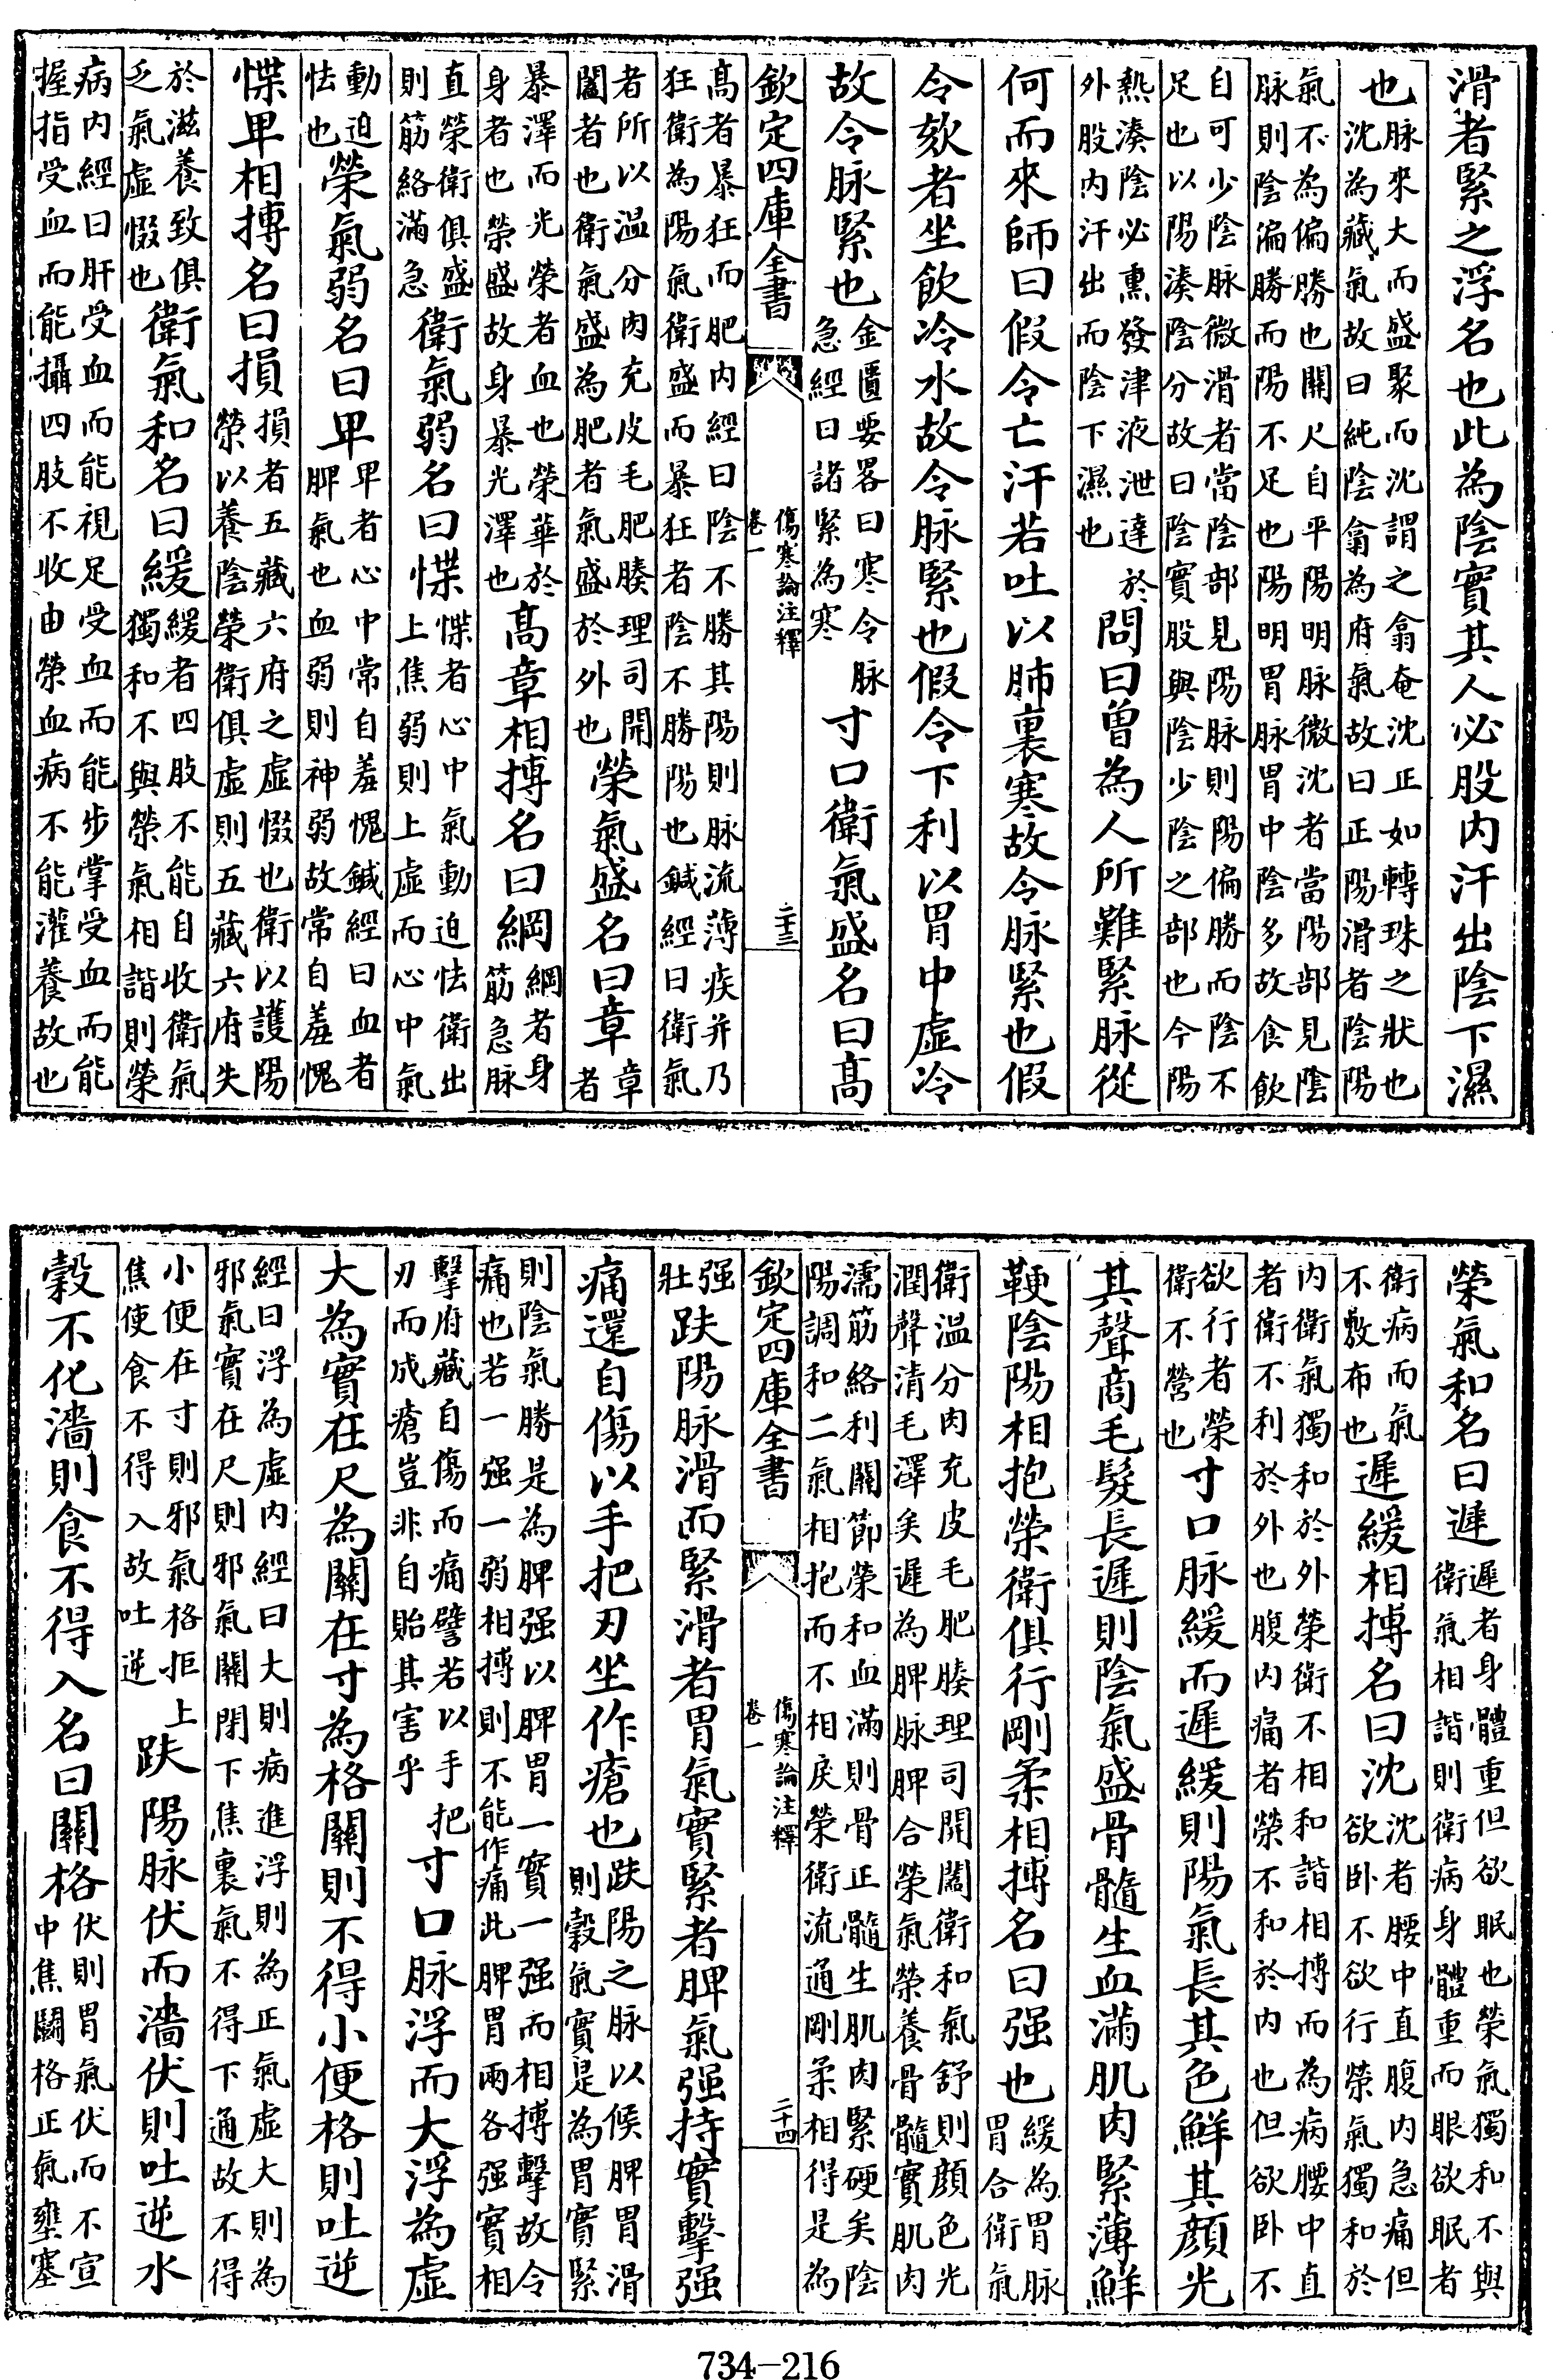 滑者緊之浮名也此為陰實其人必股内汗出陰下濕
也脉來大而盛聚而沈謂之翕奄沈正如轉珠之狀也沈為藏氣故曰純陰翕為府氣故曰正陽滑者陰陽
氣不為偏勝也關尺自平陽明脉微沈者當陽部見陰脉則陰偏勝而陽不足也陽明胃脉胃中陰多故食飲
自可少陰脉微滑者當陰部見陽脉則陽偏勝而陰不足也以陽湊陰分故曰陰實股與陰少陰之部也今陽
熱湊陰必熏發津液泄達於外股内汗出而陰下濕也問曰曽為人所難緊脉從
何而來師曰假令亡汗若吐以肺裏寒故令脉緊也假
令欬者坐飲冷水故令脉緊也假令下利以胃中虛冷
故令脉緊也金匱要畧曰寒令脉急經曰諸緊為寒寸口衛氣盛名曰髙
欽定四庫全書 傷寒論注釋 卷一 二十三
髙者暴狂而肥内經曰陰不勝其陽則脉流薄疾并乃狂衛為陽氣衛盛而暴狂者陰不勝陽也鍼經曰衛氣
者所以温分肉充皮毛肥腠理司開闔者也衛氣盛為肥者氣盛於外也榮氣盛名曰章章者
暴澤而光榮者血也榮華於身者也榮盛故身暴光澤也髙章相搏名曰綱綱者身筋急脉
直榮衛俱盛則筋絡滿急衛氣弱名曰惵惵者心中氣動迫怯衛出上焦弱則上虛而心中氣
動迫怯也榮氣弱名曰卑卑者心中常自羞愧鍼經曰血者脾氣也血弱則神弱故常自羞愧
惵卑相搏名曰損損者五藏六府之虛惙也衛以護陽榮以養陰榮衛俱虛則五藏六府失
於滋養致俱乏氣虛惙也衛氣和名曰緩緩者四肢不能自收衛氣獨和不與榮氣相諧則榮
病内經曰肝受血而能視足受血而能步掌受血而能握指受血而能攝四肢不收由榮血病不能灌養故也
榮氣和名曰遲遲者身體重但欲眠也榮氣獨和不與衛氣相諧則衛病身體重而眼欲眠者
衛病而氣不敷布也遲緩相搏名曰沈沈者腰中直腹内急痛但欲卧不欲行榮氣獨和於
内衛氣獨和於外榮衛不相和諧相搏而為病腰中直者衛不利於外也腹内痛者榮不和於内也但欲卧不
欲行者榮衛不營也寸口脉緩而遲緩則陽氣長其色鮮其顔光
其聲商毛髮長遲則陰氣盛骨髓生血滿肌肉緊薄鮮
鞕陰陽相抱榮衛俱行剛柔相搏名曰强也緩為胃脉胃合衛氣
衛温分肉充皮毛肥腠理司開闔衛和氣舒則顔色光潤聲清毛澤矣遲為脾脉脾合榮氣榮養骨髓實肌肉
濡筋絡利關節榮和血滿則骨正髓生肌肉緊硬矣陰陽調和二氣相抱而不相戾榮衛流通剛柔相得是為
欽定四庫全書 傷寒論注釋 卷一 二十四
强壯趺陽脉滑而緊滑者胃氣實緊者脾氣强持實擊强
痛還自傷以手把刃坐作瘡也趺陽之脉以候脾胃滑則穀氣實是為胃實緊
則陰氣勝是為脾强以脾胃一實一强而相搏擊故令痛也若一强一弱相搏則不能作痛此脾胃兩各强實相
擊府藏自傷而痛譬若以手把刃而成瘡豈非自貽其害乎寸口脉浮而大浮為虛
大為實在尺為關在寸為格關則不得小便格則吐逆
經曰浮為虛内經曰大則病進浮則為正氣虛大則為邪氣實在尺則邪氣關閉下焦裏氣不得下通故不得
小便在寸則邪氣格拒上焦使食不得入故吐逆趺陽脉伏而濇伏則吐逆水
穀不化濇則食不得入名曰關格伏則胃氣伏而不宣中焦關格正氣壅塞
734-216